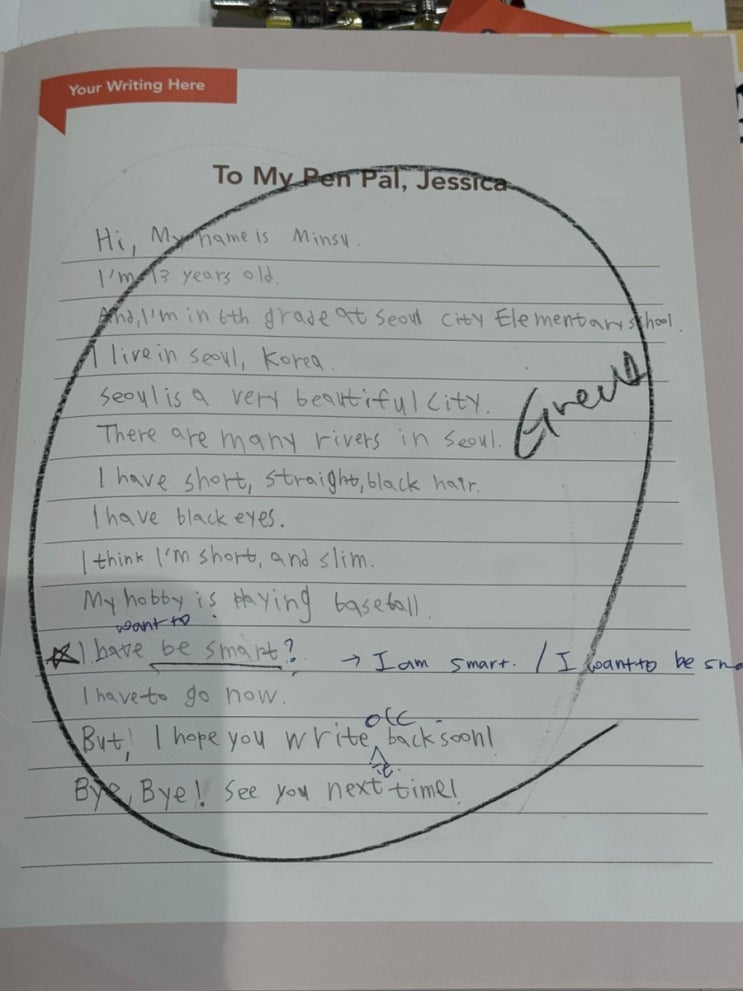 Your Writing Here
To My Pen Pal, Jessica
Hi, My name is Minsu.
I'm 13 years old.
And, I'm in 6th grade at Seoul City Elementary school.
I live in Seoul, Korea.
Seoul is a very beautiful city.
Great
There are many rivers in Seoul.
I have short, straight, black hair.
I have black eyes.
I think I'm short, and slim.
My hobby is playing baseball.
want to
I have be smart? → I am smart. / I want to be
I have to go now.
But, I hope you write back soon!
it.
Bye, Bye! See you next time!